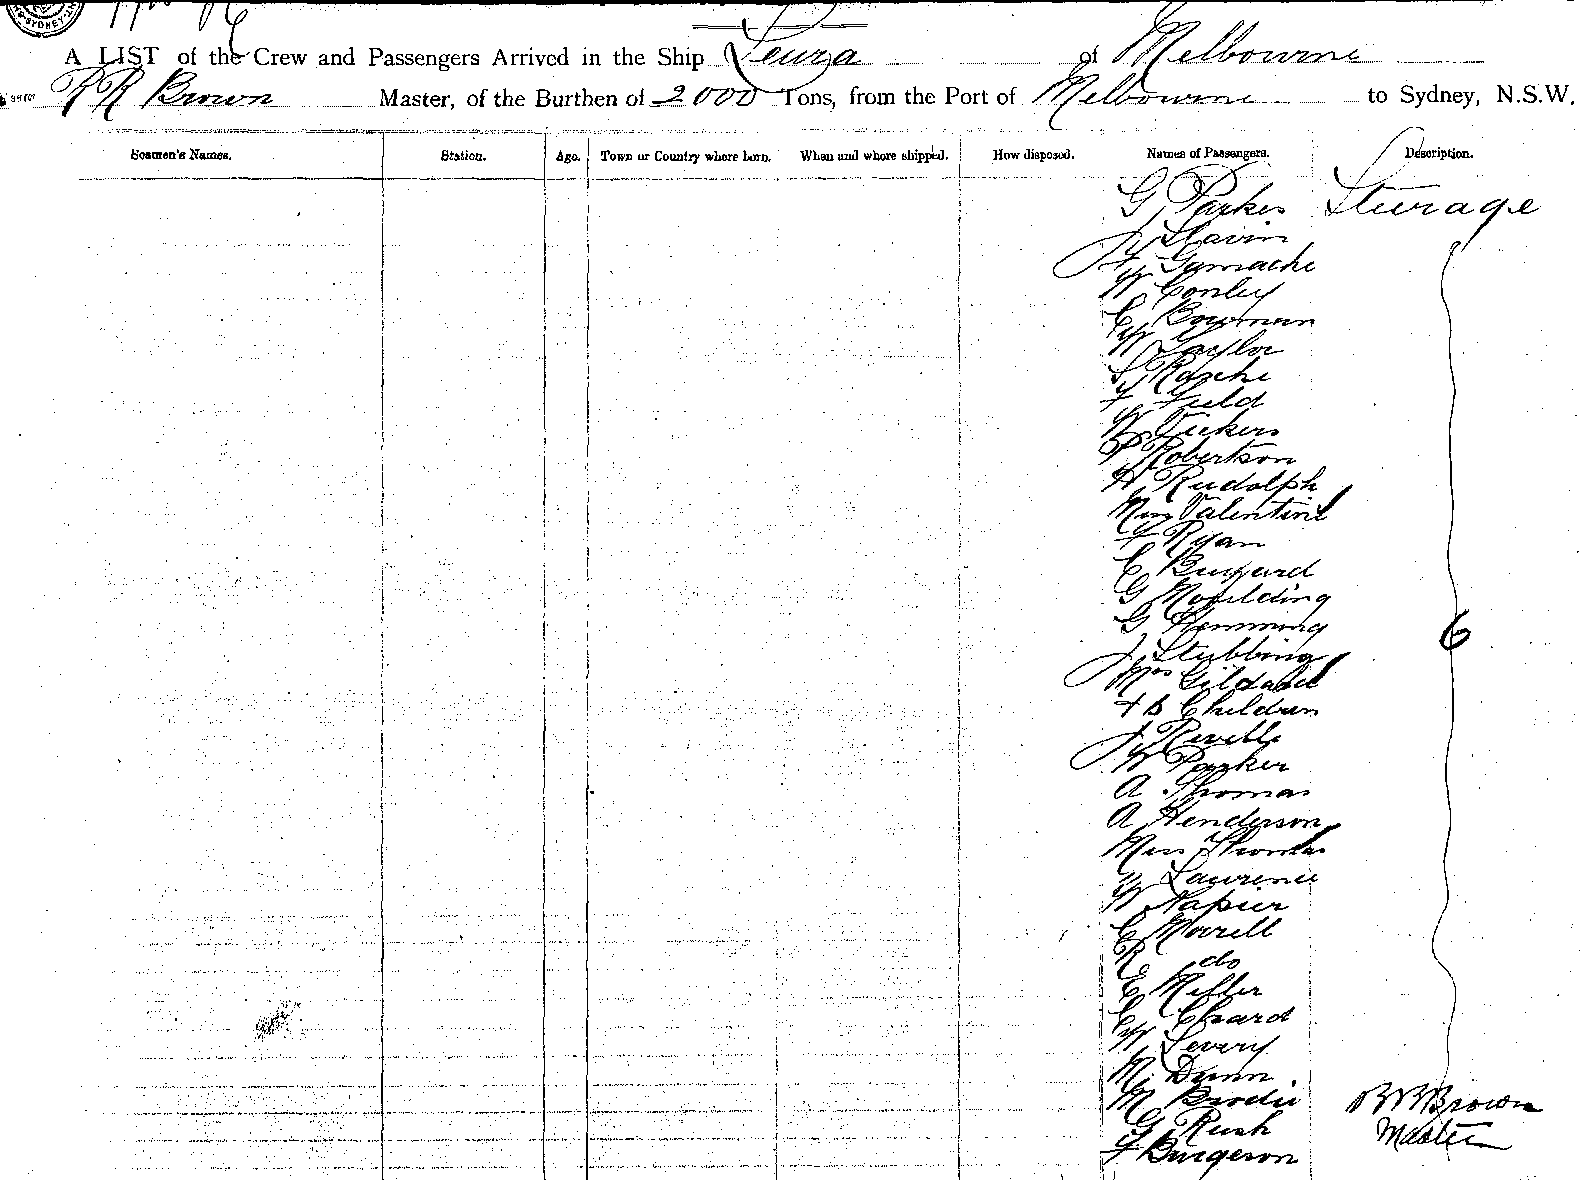 A LIST of the Crew and Passengers Arrived in the Ship Leura of Melbourne
R R Brown Master, of the Burthen of 2000 Tons, from the Port of Melbourne to Sydney, N.S.W.
Seamen's Names. Station. Age. Town or Country where born. When and where shipped. How disposed. Names of Passengers. Description.
G Parkes Sturage
W Slavin
F Gamache
W Conley
C Bowman
W Taylor
S Rasche
F Field
W Vickers
P Robertson
H Rudolph
Miss Valentine
F Ryan
C Buzzard
G Moulding
G Hemming 6
J Stubbing
Mrs Gildard
+ 6 Children
J Reville
W Parker
A Thomas
A Henderson
Miss Thomas
W Lawrence
W Napier
C Morrell
R do
E Miller
C Chard
W Levery
M Dunn
M Brodie RRBrown
G Rush Master
F Burgeson